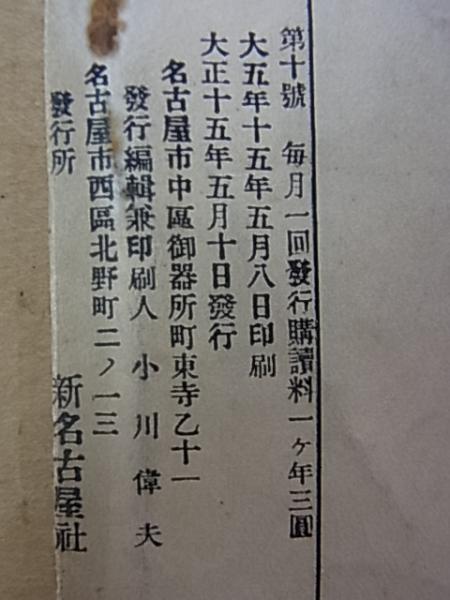 第十號　每月一回發行購讀料一ヶ年三圓
大五年十五年五月八日印刷
大正十五年五月十日發行
名古屋市中區御器所町東寺乙十一
發行編輯兼印刷人　小川偉夫
名古屋市西區北野町二ノ一三
發行所　新名古屋社